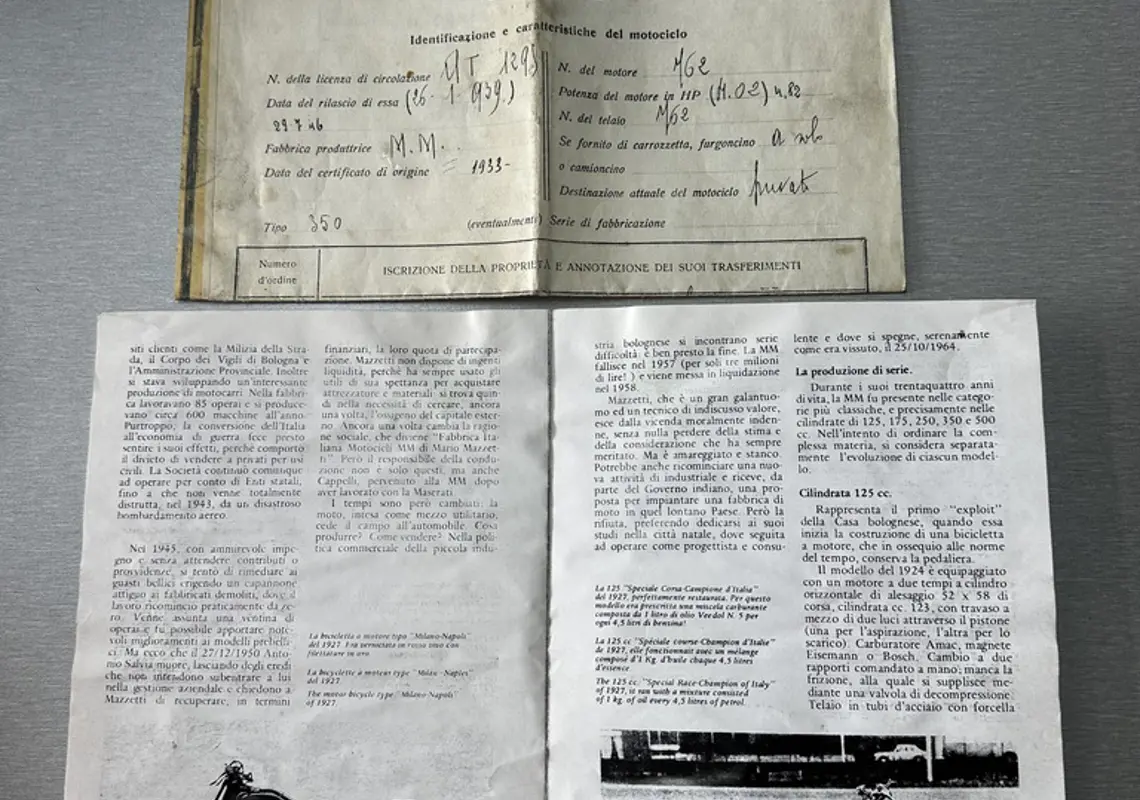 Identificazione e caratteristiche del motociclo
N. della licenza di circolazione MT 1293
Data del rilascio di essa (26-1-939.)
29 7 46
Fabbrica produttrice M.M.
Data del certificato di origine = 1933-
Tipo 350
N. del motore M62
Potenza del motore in HP (11.02) n. 82
N. del telaio M62
Se fornito di carrozzetta, furgoncino a solo
o camioncino
Destinazione attuale del motociclo privati
(eventualmente) Serie di fabbricazione
Numero
d'ordine
ISCRIZIONE DELLA PROPRIETÀ E ANNOTAZIONE DEI SUOI TRASFERIMENTI
siti clienti come la Milizia della Stra-
da, il Corpo dei Vigili di Bologna e
l'Amministrazione Provinciale. Inoltre
si stava sviluppando un'interessante
produzione di motocarri. Nella fabbri-
ca lavoravano 85 operai e si produce-
vano circa 600 macchine all'anno.
Purtroppo, la conversione dell'Italia
all'economia di guerra fece presto
sentire i suoi effetti, perché comportò
il divieto di vendere a privati per usi
civili. La Società continuò comunque
ad operare per conto di Enti statali,
fino a che non venne totalmente
distrutta, nel 1943, da un disastroso
bombardamento aereo.
Nel 1945, con ammirevole impe-
gno e senza attendere contributi o
provvidenze, si tentò di rimediare ai
guasti bellici erigendo un capannone
attiguo ai fabbricati demoliti, dove il
lavoro ricominciò praticamente da ze-
ro. Venne assunta una ventina di
operai e fu possibile apportare note-
voli miglioramenti ai modelli prebelli-
ci. Ma ecco che il 27/12/1950 Anto-
nio Salvia muore, lasciando degli eredi
che non intendono subentrare a lui
nella gestione aziendale e chiedono a
Mazzetti di recuperare, in termini
finanziari, la loro quota di partecipa-
zione. Mazzetti non dispone di ingenti
liquidità, perché ha sempre usato gli
utili di sua spettanza per acquistare
attrezzature e materiali: si trova quin-
di nella necessità di cercare, ancora
una volta, l'ossigeno del capitale ester-
no. Ancora una volta cambia la ragio-
ne sociale, che diviene "Fabbrica Ita-
liana Motocicli MM di Mario Mazzet-
ti". Però il responsabile della condu-
zione non è solo questi, ma anche
Cappelli, pervenuto alla MM dopo
aver lavorato con la Maserati.
I tempi sono però cambiati: la
moto, intesa come mezzo utilitario,
cede il campo all'automobile. Cosa
produrre? Come vendere? Nella poli-
tica commerciale della piccola indu-
La bicicletta a motore tipo "Milano-Napoli"
del 1927. Era verniciata in rosso vivo con
filettature in oro.
La bicyclette a moteur type "Milan-Naples"
del 1927.
The motor bicycle type "Milano-Napoli"
of 1927.
stria bolognese si incontrano serie
difficoltà: è ben presto la fine. La MM
fallisce nel 1957 (per soli tre milioni
di lire! ) e viene messa in liquidazione
nel 1958.
Mazzetti, che è un gran galantuo-
mo ed un tecnico di indiscusso valore,
esce dalla vicenda moralmente inden-
ne, senza nulla perdere della stima e
della considerazione che ha sempre
meritato. Ma è amareggiato e stanco.
Potrebbe anche ricominciare una nuo-
va attività di industriale e riceve, da
parte del Governo indiano, una pro-
posta per impiantare una fabbrica di
moto in quel lontano Paese. Però la
rifiuta, preferendo dedicarsi ai suoi
studi nella città natale, dove seguita
ad operare come progettista e consu-
La 125 "Speciale Corsa-Campione d'Italia"
del 1927, perfettamente restaurata. Per questo
modello era prescritta una miscela carburante
composta da 1 litro di olio Veedol N. 5 per
ogni 4,5 litri di benzina!
La 125 cc "Spéciale course-Champion d'Italie"
de 1927, elle fonctionnait avec un mélange
composé d'1 Kg. d'huile chaque 4,5 litres
d'essence.
The 125 cc. "Special Race-Champion of Italy"
of 1927, it ran with a mixture consisted
of 1 kg. of oil every 4,5 litres of petrol.
lente e dove si spegne, serenamente
come era vissuto, il 25/10/1964.
La produzione di serie.
Durante i suoi trentaquattro anni
di vita, la MM fu presente nelle catego-
rie più classiche, e precisamente nelle
cilindrate di 125, 175, 250, 350 e 500
cc. Nell'intento di ordinare la com-
plessa materia, si considera separata-
mente l'evoluzione di ciascun model-
lo.
Cilindrata 125 cc.
Rappresenta il primo "exploit"
della Casa bolognese, quando essa
inizia la costruzione di una bicicletta
a motore, che in ossequio alle norme
del tempo, conserva la pedaliera.
Il modello del 1924 è equipaggiato
con un motore a due tempi a cilindro
orizzontale di alesaggio 52 x 58 di
corsa, cilindrata cc. 123, con travaso a
mezzo di due luci attraverso il pistone
(una per l'aspirazione, l'altra per lo
scarico). Carburatore Amac, magnete
Eisemann o Bosch. Cambio a due
rapporti comandato a mano; manca la
frizione, alla quale si supplisce me-
diante una valvola di decompressione.
Telaio in tubi d'acciaio con forcella